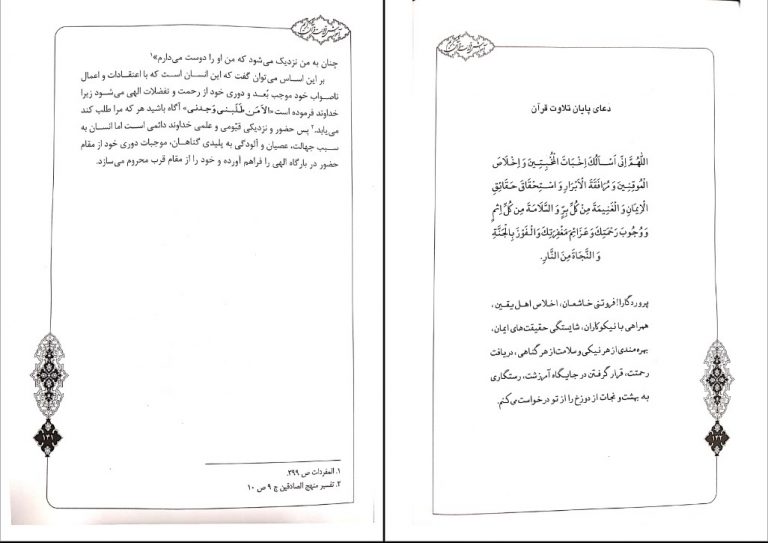 چنان به من نزدیک می‌شود که من او را دوست می‌دارم»۱
بر این اساس می‌توان گفت که این انسان است که با اعتقادات و اعمال
ناصواب خود موجب بُعد و دوری خود از رحمت و تفضلات الهی می‌شود زیرا
خداوند فرموده است «اَلا مَن طَلَبَنی وَجَدَنی» آگاه باشید هر که مرا طلب کند
می‌یابد.۲ پس حضور و نزدیکی قیّومی و علمی خداوند دائمی است اما انسان به
سبب جهالت، عصیان و آلودگی به پلیدی گناهان، موجبات دوری خود از مقام
حضور در بارگاه الهی را فراهم آورده و خود را از مقام قرب محروم می‌سازد.
۱. المفردات ص ۳۹۹.
۲. تفسیر منهج الصادقین ج ۹ ص ۱۰
۱۲۱
دعای پایان تلاوت قرآن
اَللّٰهُمَّ اِنّی اَسْاَلُكَ اِخْبَاتَ الْمُخْبِتِینَ وَ اِخْلَاصَ
الْمُوقِنِینَ وَ مُرَافَقَةَ الْاَبْرَارِ وَ اسْتِحْقَاقَ حَقَائِقِ
الْاِیمَانِ وَ الْغَنِیمَةَ مِنْ كُلِّ بِرٍّ وَ السَّلَامَةَ مِن كُلِّ اِثْمٍ
وَ وُجُوبَ رَحْمَتِكَ وَ عَزَائِمَ مَغْفِرَتِكَ وَ الْفَوْزَ بِالْجَنَّةِ
وَ النَّجَاةَ مِنَ النَّارِ.
پروردگارا! فروتنی خاشعان، اخلاص اهل یقین،
همراهی با نیکوکاران، شایستگی حقیقت‌های ایمان،
بهره‌مندی از هر نیکی و سلامت از هر گناهی، دریافت
رحمتت، قرار گرفتن در جایگاه آمرزشت، رستگاری
به بهشت و نجات از دوزخ را از تو درخواست می‌کنم.
۱۲۲